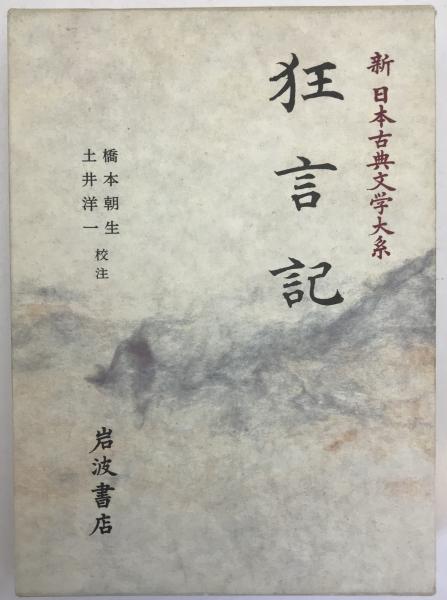 新 日本古典文学大系
狂言記
橋本朝生
土井洋一 校注
岩波書店